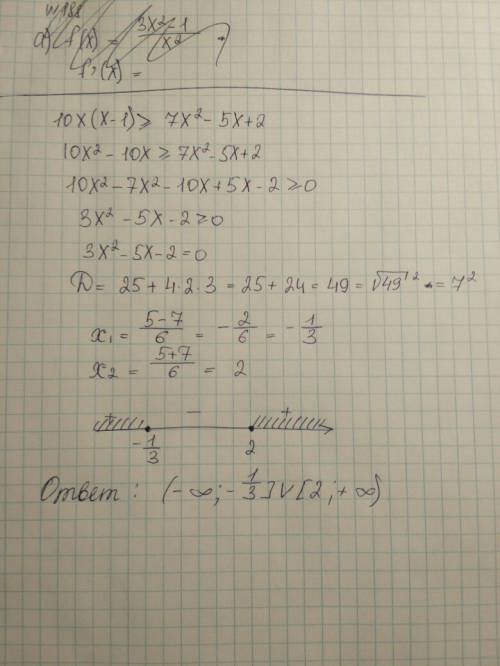 №188
a) f(x) = 3x²-1 / x²
f'(x) =
10x(x-1) ≥ 7x²-5x+2
10x²-10x ≥ 7x²-5x+2
10x²-7x²-10x+5x-2 ≥ 0
3x²-5x-2 ≥ 0
3x²-5x-2=0
D = 25+4·2·3 = 25+24 = 49 = √49² = 7²
x₁ = 5-7/6 = -2/6 = -1/3
x₂ = 5+7/6 = 2
+ - +
-1/3 2
Ответ: (-∞; -1/3] ∨ [2; +∞)